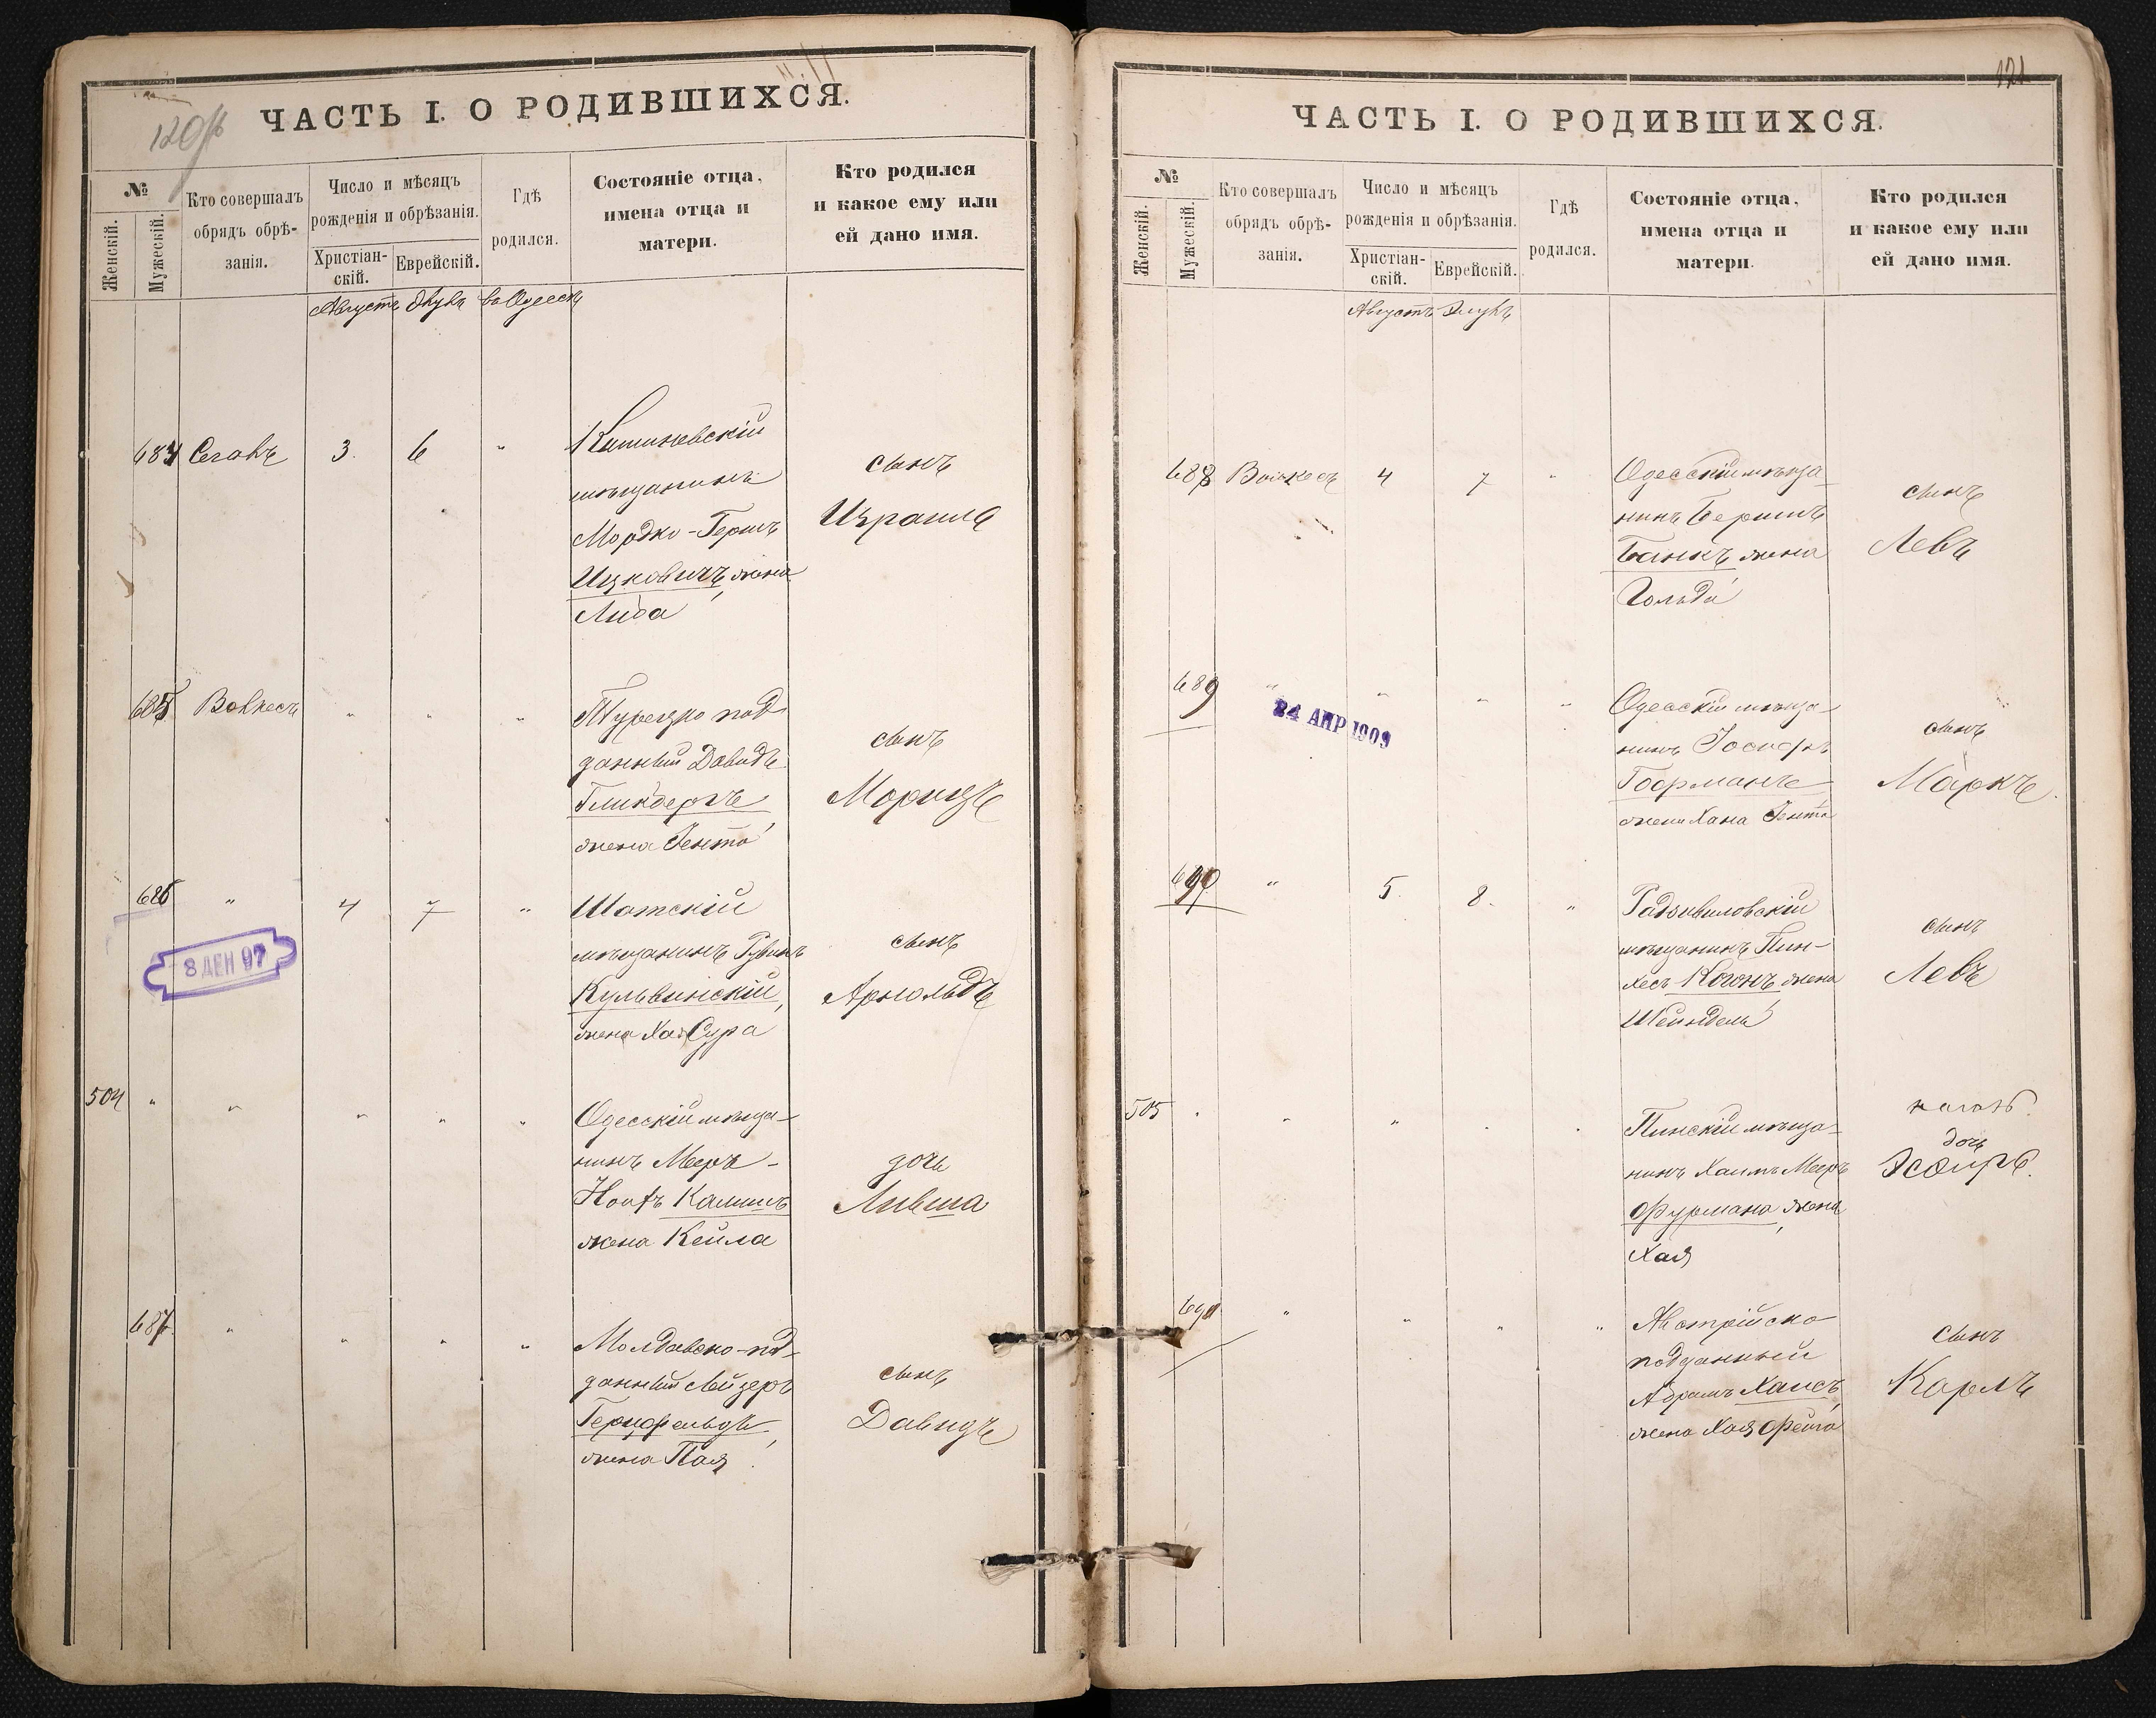 120 об
ЧАСТЬ I. О РОДИВШИХСЯ.
№
Женскій.
Мужескій.
Кто совершалъ
обрядъ обрѣ-
занія.
Число и мѣсяцъ
рожденія и обрѣзанія.
Христіан-
скій.
Еврейскій.
Гдѣ
родился.
Состояніе отца,
имена отца и
матери.
Кто родился
и какое ему или
ей дано имя.
Августъ Элулъ въ Одессѣ
684 Сегалъ 3. 6 "
Кишиневскій
мѣщанинъ
Мордко-Гершъ
Ицковичъ, жена
Либа
сынъ
Израиль
685 Волкесъ " " "
Турецко под
данный Давидъ
Глинбергъ
жена Гента
сынъ
Морицъ
686 " 4 7 "
Шатскій
мѣщанинъ Рувинъ
Кульвинскій,
жена Хая Сура
сынъ
Арнольдъ
8 ДЕН 97
504 " " " " "
Одесскій мѣща-
нинъ Меръ-
Ноихъ Калишъ
жена Кейла
дочь
Ливша
687. " " " "
Молдавско-под-
данный Лейзеръ
Герцфельдъ,
жена Пая
сынъ
Давидъ
121
ЧАСТЬ I. О РОДИВШИХСЯ.
№
Женскій.
Мужескій.
Кто совершалъ
обрядъ обрѣ-
занія.
Число и мѣсяцъ
рожденія и обрѣзанія.
Христіан-
скій.
Еврейскій.
Гдѣ
родился.
Состояніе отца,
имена отца и
матери.
Кто родился
и какое ему или
ей дано имя.
Августъ Элулъ
688 Волкесъ 4 7 "
Одесскій мѣща-
нинъ Бершъ
Банкъ жена
Гольда
сынъ
Левъ
689 " " " "
24 АПР 1909
Одесскій мѣща-
нинъ Іосифъ
Гофманъ
жена Хана Гента
сынъ
Маркъ
690 " 5. 8. "
Радзивиловскій
мѣщанинъ Пин-
хесъ Коганъ жена
Шейндель
сынъ
Левъ
505 " " " " "
Пинскій мѣща-
нинъ Хаимъ Меръ
Фурманъ, жена
Хая
дочь
Эсфирь.
691 " " " "
Австрійско
подданный
Абрамъ Хаисъ,
жена Хая Фейга
сынъ
Карлъ